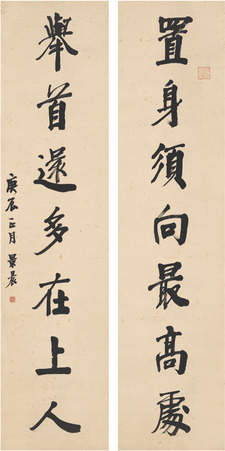 置身須向最高處
舉首還多在上人
庚辰正月 景晨